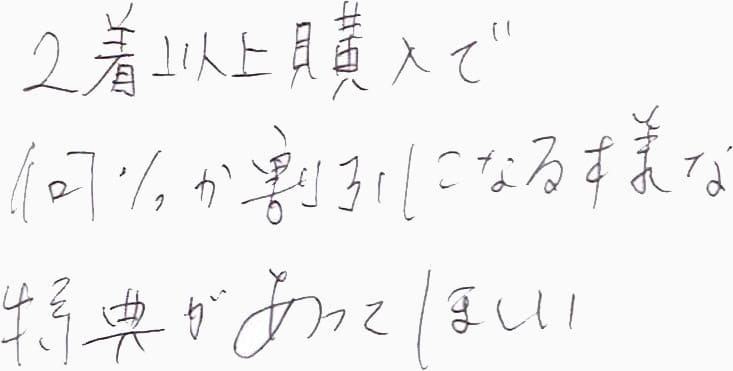 2着以上購入で
何%か割引になる様な
特典があってほしい